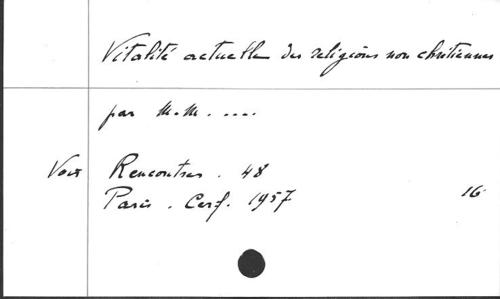 Vitalité actuelle des religions non chrétiennes
par M.M. ....
Voir Rencontres. 48
Paris. Cerf. 1957 16